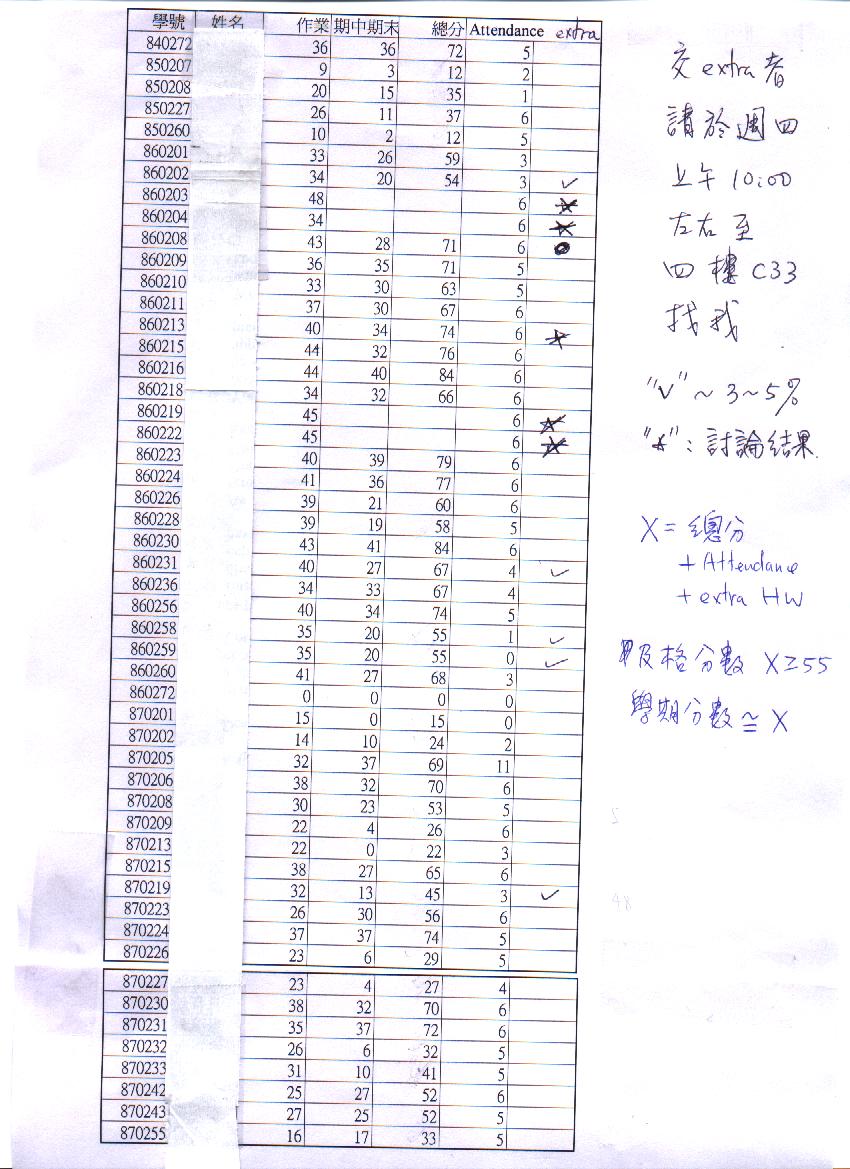 學號 姓名 作業 期中期末 總分 Attendance extra
840272 36 36 72 5
850207 9 3 12 2
850208 20 15 35 1
850227 26 11 37 6
850260 10 2 12 5
860201 33 26 59 3
860202 34 20 54 3 ✓
860203 48 6 ☆
860204 34 6 ☆
860208 43 28 71 6 ●
860209 36 35 71 5
860210 33 30 63 5
860211 37 30 67 6
860213 40 34 74 6 ☆
860215 44 32 76 6
860216 44 40 84 6
860218 34 32 66 6
860219 45 6 ☆
860222 45 6 ☆
860223 40 39 79 6
860224 41 36 77 6
860226 39 21 60 6
860228 39 19 58 5
860230 43 41 84 6
860231 40 27 67 4 ✓
860236 34 33 67 4
860256 40 34 74 5
860258 35 20 55 1 ✓
860259 35 20 55 0 ✓
860260 41 27 68 3
860272 0 0 0 0
870201 15 0 15 0
870202 14 10 24 2
870205 32 37 69 11
870206 38 32 70 6
870208 30 23 53 5
870209 22 4 26 6
870213 22 0 22 3
870215 38 27 65 6
870219 32 13 45 3 ✓
870223 26 30 56 6
870224 37 37 74 5
870226 23 6 29 5
870227 23 4 27 4
870230 38 32 70 6
870231 35 37 72 6
870232 26 6 32 5
870233 31 10 41 5
870242 25 27 52 6
870243 27 25 52 5
870255 16 17 33 5
交 extra 者
請於週四
上午 10:00
左右至
四樓 C33
找我
"V" ~ 3~5%
"☆": 討論結果
X = 總分
+ Attendance
+ extra HW
及格分數 X≥55
學期分數 ≅ X